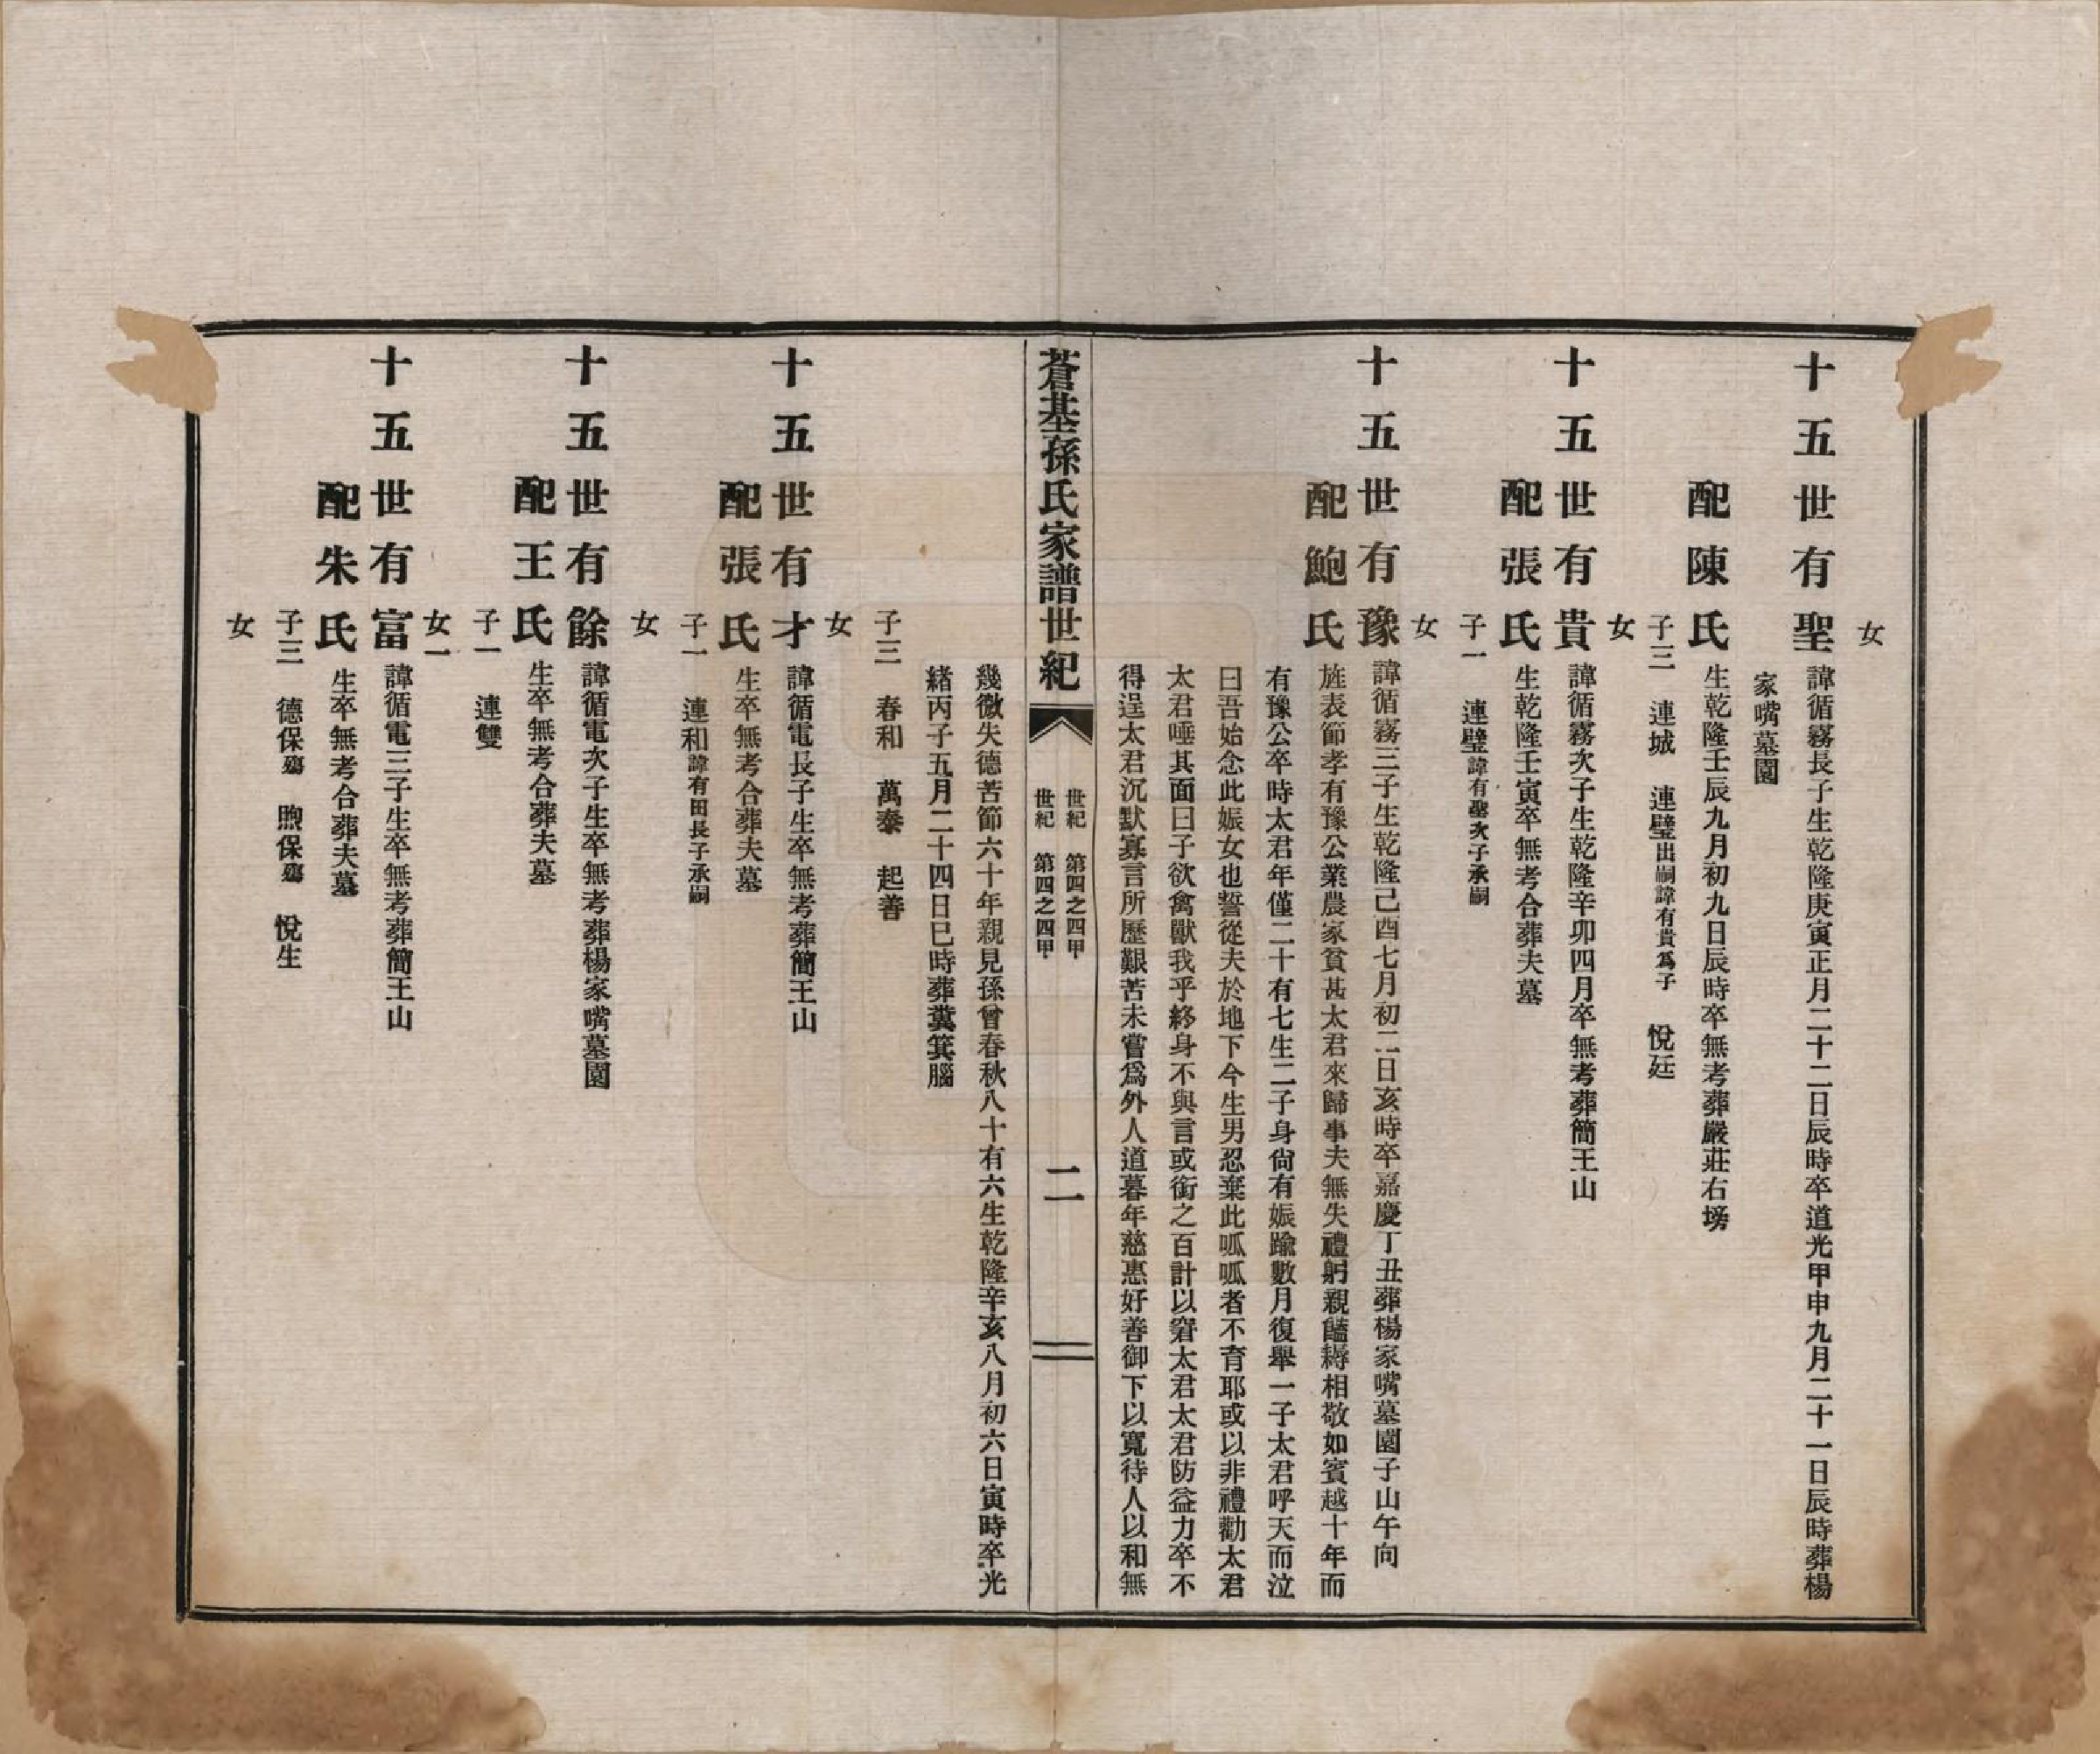 女
十五世有聖 諱循霧長子生乾隆庚寅正月二十二日辰時卒道光甲申九月二十一日辰時葬楊
家嘴墓園
配陳氏 生乾隆壬辰九月初九日辰時卒無考葬嚴莊右塝
子三 連城 連璧出嗣諱有貴爲子 悅廷
女
十五世有貴 諱循霧次子生乾隆辛卯四月卒無考葬簡王山
配張氏 生乾隆壬寅卒無考合葬夫墓
子一 連璧諱有聖次子承嗣
女
十五世有豫 諱循霧三子生乾隆己酉七月初二日亥時卒嘉慶丁丑葬楊家嘴墓園子山午向
配鮑氏 旌表節孝有豫公業農家貧甚太君來歸事夫無失禮躬親饁耨相敬如賓越十年而
有豫公卒時太君年僅二十有七生二子身尙有娠踰數月復舉一子太君呼天而泣
曰吾始念此娠女也誓從夫於地下今生男忍棄此呱呱者不育耶或以非禮勸太君
太君唾其面曰子欲禽獸我乎終身不與言或銜之百計以窘太君太君防益力卒不
得逞太君沉默寡言所歷艱苦未嘗爲外人道暮年慈惠好善御下以寬待人以和無
蒼基孫氏家譜世紀
世紀 第四之四甲
世紀 第四之四甲
二
幾微失德苦節六十年親見孫曾春秋八十有六生乾隆辛亥八月初六日寅時卒光
緒丙子五月二十四日巳時葬糞箕腦
子三 春和 萬泰 起善
女
十五世有才 諱循電長子生卒無考葬簡王山
配張氏 生卒無考合葬夫墓
子一 連和諱有田長子承嗣
女
十五世有餘 諱循電次子生卒無考葬楊家嘴墓園
配王氏 生卒無考合葬夫墓
子一 連雙
女一
十五世有富 諱循電三子生卒無考葬簡王山
配朱氏 生卒無考合葬夫墓
子三 德保殤 煦保殤 悅生
女